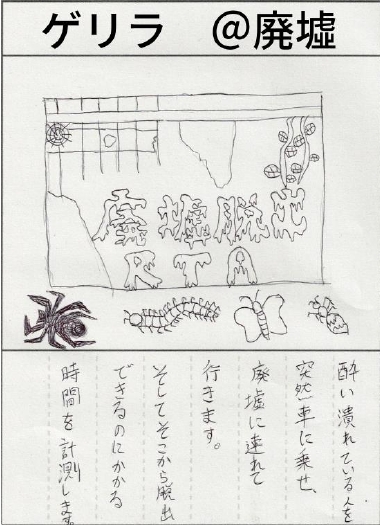 ゲリラ　@廃墟
廃墟脱出
RTA
酔い潰れている人を
突然車に乗せ、
廃墟に連れて
行きます。
そしてそこから脱出
できるのにかかる
時間を計測します